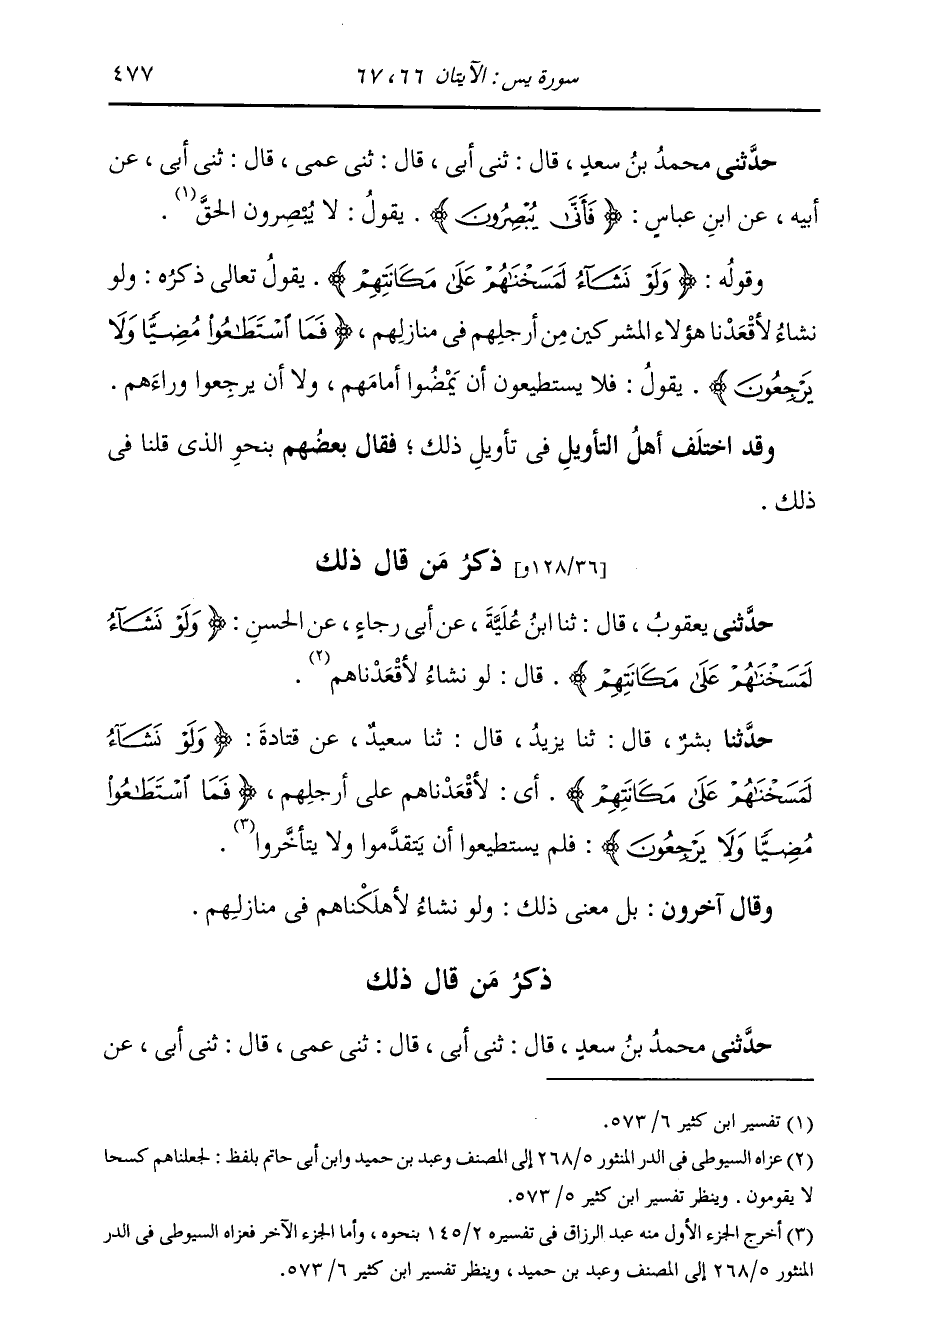 سورة يس : الآيتان ٦٦ ، ٦٧ ٤٧٧
حدَّثنى محمدُ بنُ سعدٍ ، قال : ثنى أبى ، قال : ثنى عمى ، قال : ثنى أبى ، عن
أبيه ، عن ابنِ عباسٍ : ﴿ فَأَنَّىٰ يُبْصِرُونَ ﴾ . يقولُ : لا يُبْصِرون الحقَّ(١) .
وقولُه : ﴿ وَلَوْ نَشَآءُ لَمَسَخْنَٰهُمْ عَلَىٰ مَكَانَتِهِمْ ﴾ . يقولُ تعالى ذكرُه : ولو
نشاءُ لأقْعَدْنا هؤلاء المشركين مِن أرجلِهم فى منازلِهم ، ﴿ فَمَا ٱسْتَطَٰعُوا۟ مُضِيًّا وَلَا
يَرْجِعُونَ ﴾ . يقولُ : فلا يستطيعون أن يَمْضُوا أمامَهم ، ولا أن يرجِعوا وراءَهم .
وقد اختلَف أهلُ التأويلِ فى تأويلِ ذلك ؛ فقال بعضُهم بنحوِ الذى قلنا فى
ذلك .
[١٢٨/٣٦و] ذكرُ مَن قال ذلك
حدَّثنى يعقوبُ ، قال : ثنا ابنُ عُلَيَّةَ ، عن أبى رجاءٍ ، عن الحسنِ : ﴿ وَلَوْ نَشَآءُ
لَمَسَخْنَٰهُمْ عَلَىٰ مَكَانَتِهِمْ ﴾ . قال : لو نشاءُ لأقْعَدْناهم(٢) .
حدَّثنا بشرٌ ، قال : ثنا يزيدُ ، قال : ثنا سعيدٌ ، عن قتادةَ : ﴿ وَلَوْ نَشَآءُ
لَمَسَخْنَٰهُمْ عَلَىٰ مَكَانَتِهِمْ ﴾ . أى : لأقْعَدْناهم على أرجلِهم ، ﴿ فَمَا ٱسْتَطَٰعُوا۟
مُضِيًّا وَلَا يَرْجِعُونَ ﴾ : فلم يستطيعوا أن يَتقدَّموا ولا يتأخَّروا(٣) .
وقال آخرون : بل معنى ذلك : ولو نشاءُ لأهلَكْناهم فى منازلِهم .
ذكرُ مَن قال ذلك
حدَّثنى محمدُ بنُ سعدٍ ، قال : ثنى أبى ، قال : ثنى عمى ، قال : ثنى أبى ، عن
(١) تفسير ابن كثير ٦/ ٥٧٣.
(٢) عزاه السيوطى فى الدر المنثور ٢٦٨/٥ إلى المصنف وعبد بن حميد وابن أبى حاتم بلفظ : لجعلناهم كسحا
لا يقومون . وينظر تفسير ابن كثير ٥/ ٥٧٣.
(٣) أخرج الجزء الأول منه عبد الرزاق فى تفسيره ١٤٥/٢ بنحوه ، وأما الجزء الآخر فعزاه السيوطى فى الدر
المنثور ٢٦٨/٥ إلى المصنف وعبد بن حميد ، وينظر تفسير ابن كثير ٦/ ٥٧٣.